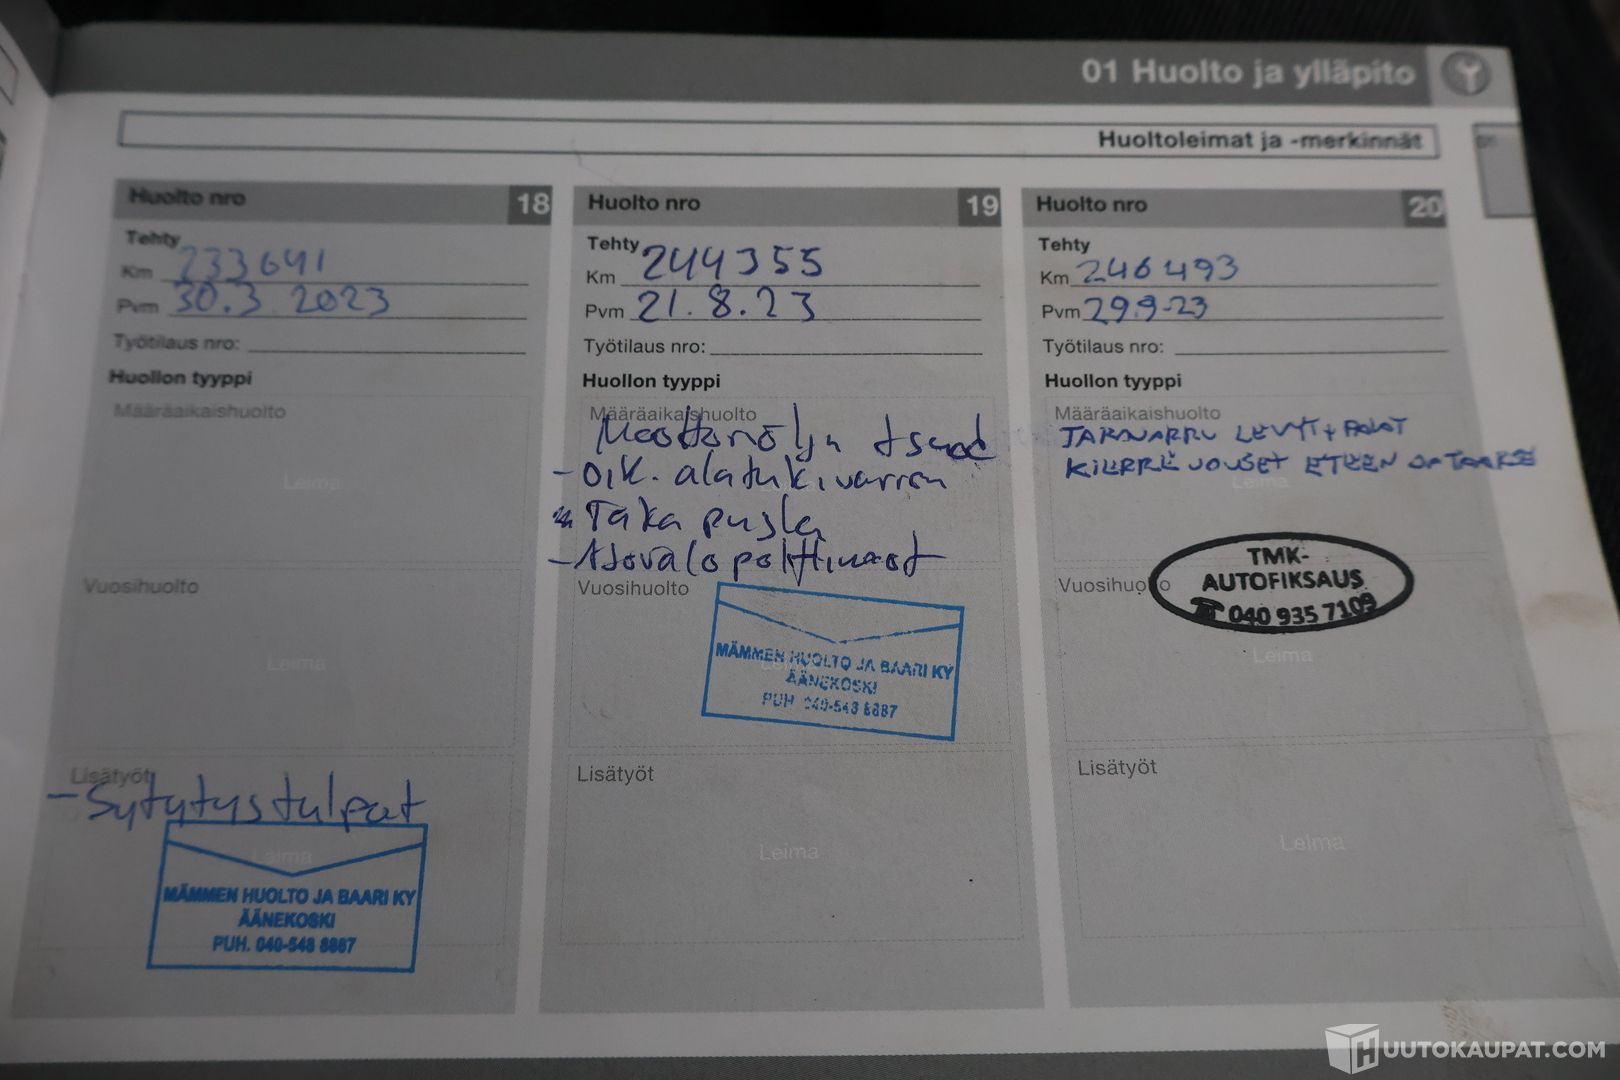 01 Huolto ja ylläpito
Huoltoleimat ja -merkinnät
Huolto nro 18
Tehty
Km 233641
Pvm 30.3.2023
Työtilaus nro:
Huollon tyyppi
Määräaikaishuolto
Leima
Vuosihuolto
Leima
Lisätyöt
- Sytytystulpat
Leima
MÄMMEN HUOLTO JA BAARI KY
ÄÄNEKOSKI
PUH. 040-548 8887
Huolto nro 19
Tehty
Km 244355
Pvm 21.8.23
Työtilaus nro:
Huollon tyyppi
Määräaikaishuolto
- Oik. alatukivarren
Taka pusla
- Ajovalopolttimoot
Vuosihuolto
MÄMMEN HUOLTO JA BAARI KY
ÄÄNEKOSKI
PUH. 040-548 8887
Lisätyöt
Leima
Huolto nro 20
Tehty
Km 246493
Pvm 29.9-23
Työtilaus nro:
Huollon tyyppi
Määräaikaishuolto
JARRU LEVYT + PALAT
KIERREJOUSET ETEEN JA TAAKSE
Leima
TMK-
AUTOFIKSAUS
☎ 040 935 7109
Vuosihuolto
Leima
Lisätyöt
Leima
HUUTOKAUPAT.COM